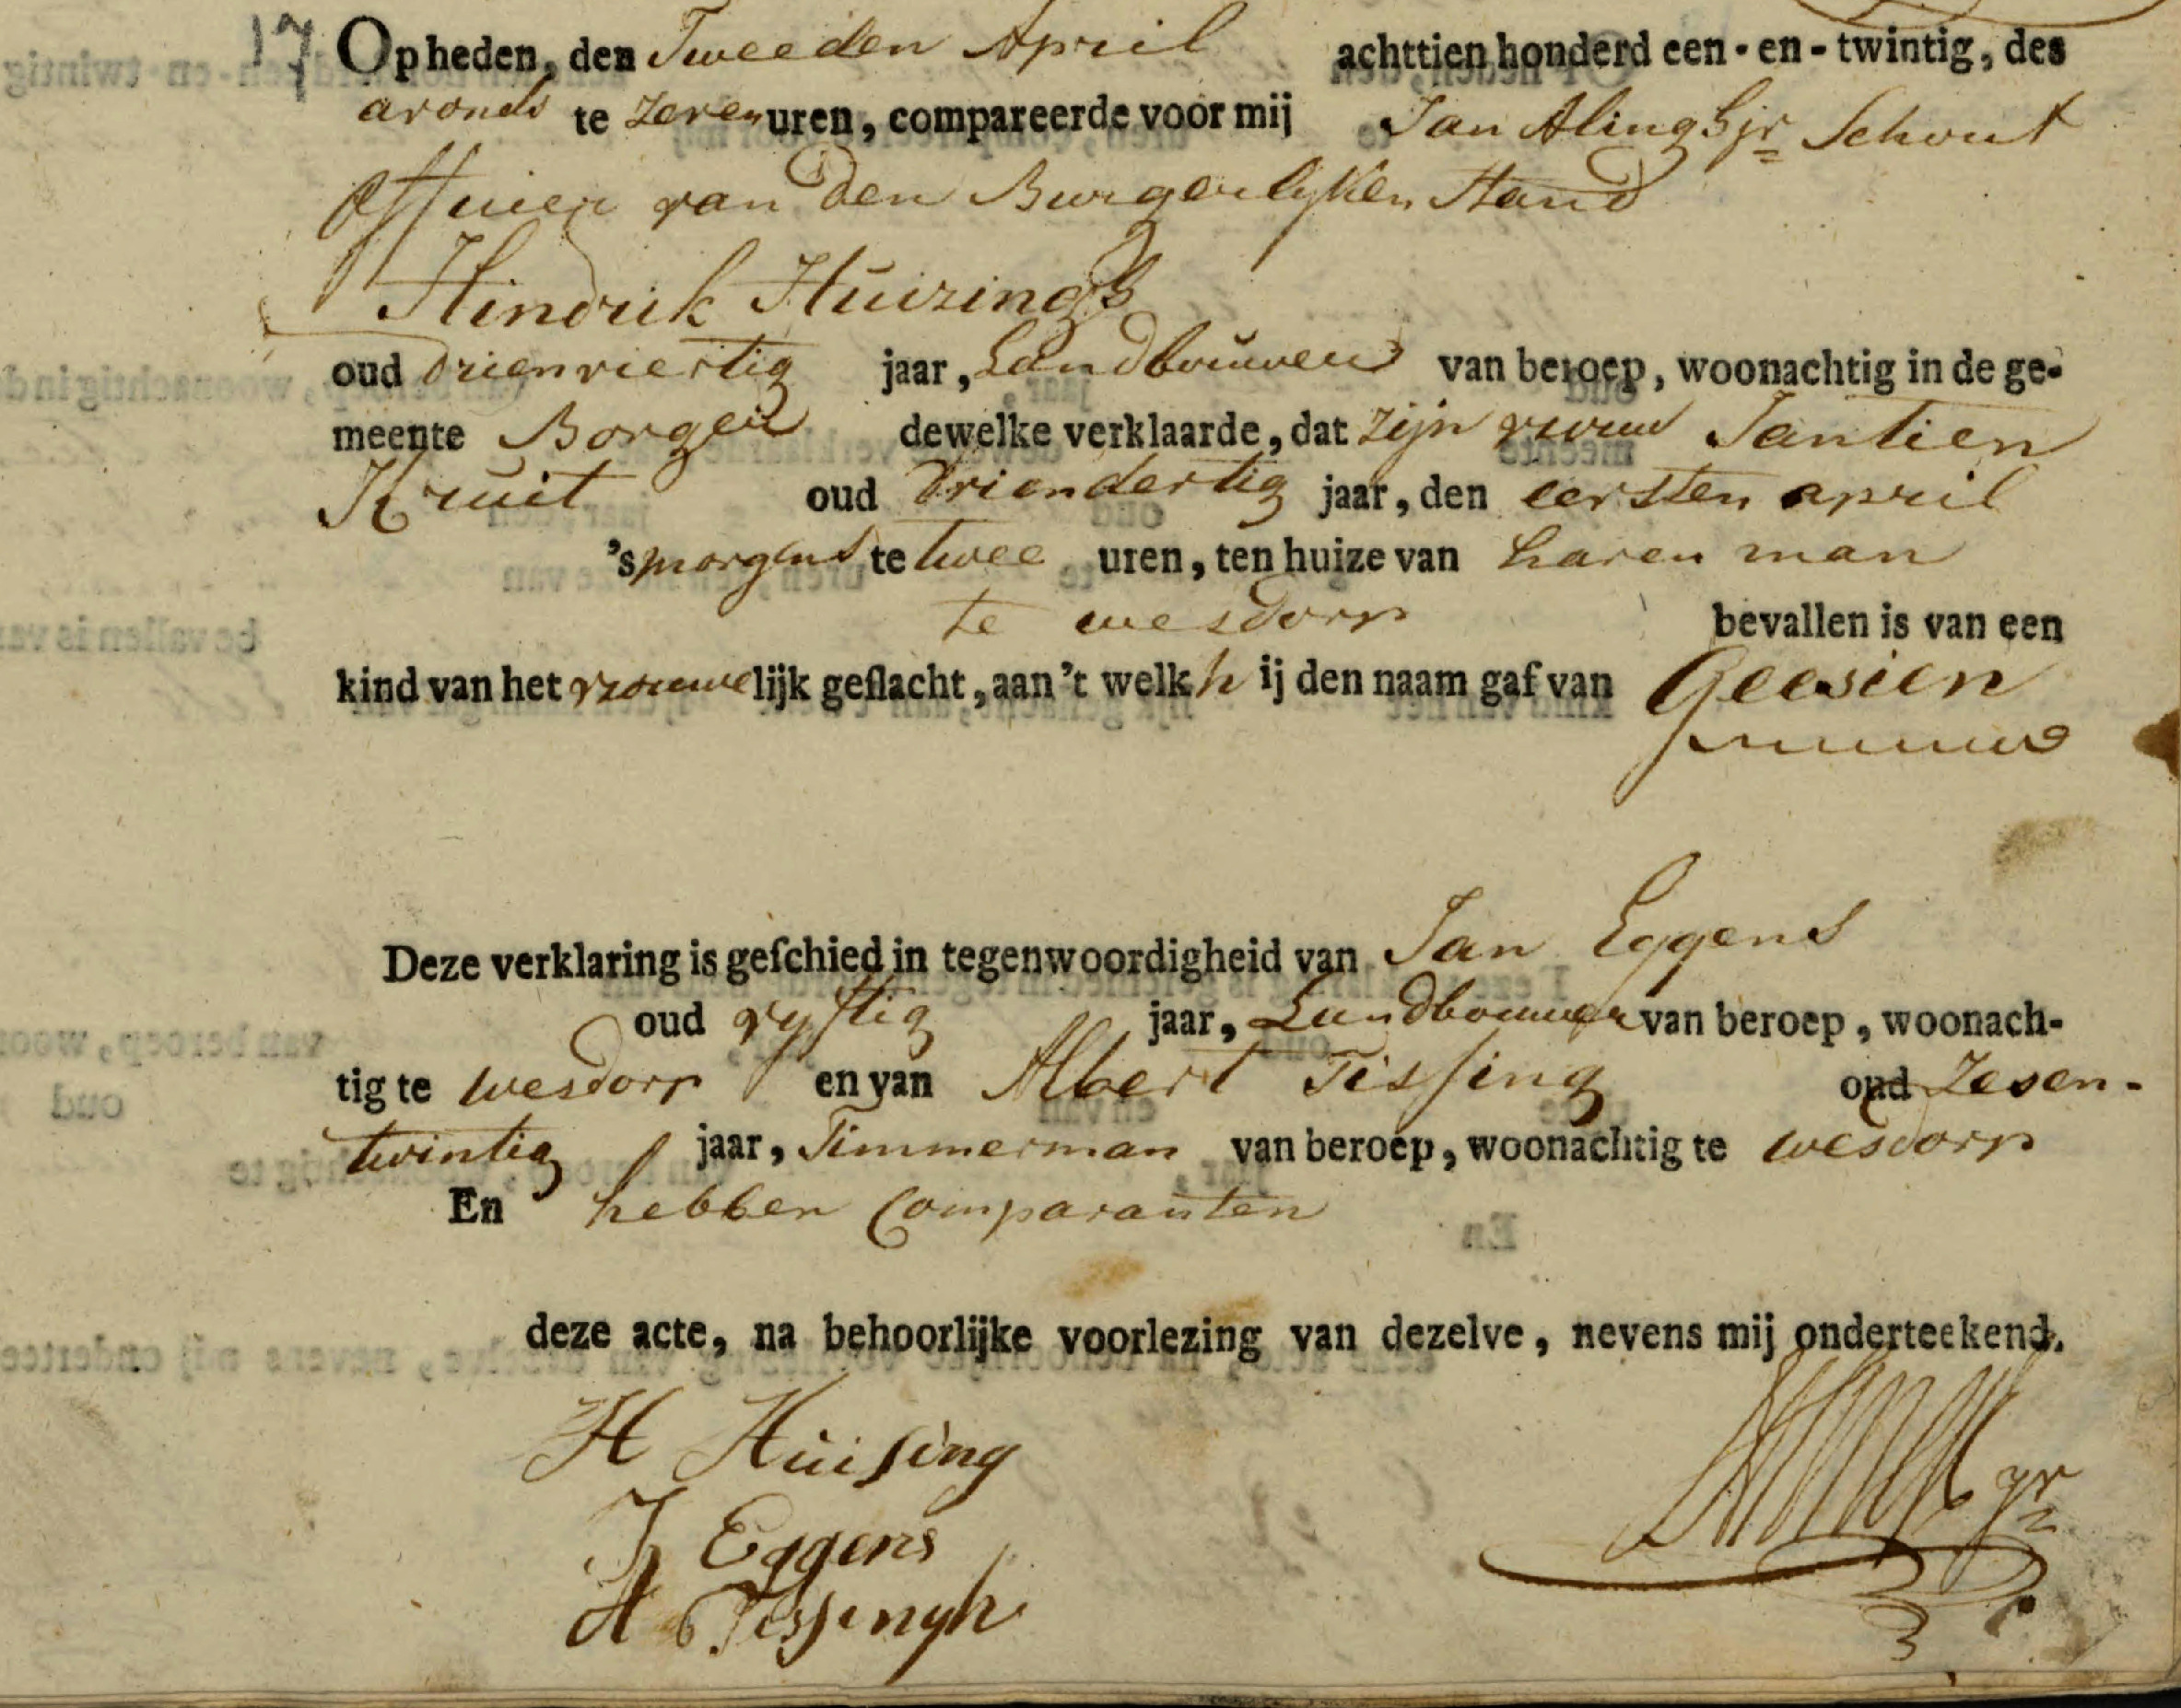 17 Op heden, den Tweeden April achttien honderd een-en-twintig, des
avonds te zeven uren, compareerde voor mij Jan Alingh jr Schout
Officier van den Burgerlyken Stand
Hindrik Huizingh
oud drienviertig jaar, Landbouwer van beroep, woonachtig in de ge-
meente Borger dewelke verklaarde, dat zijn vrouw Jantien
Kruit oud driendertig jaar, den eersten april
's morgens te twee uren, ten huize van haren man
te wesdorp bevallen is van een
kind van het vrouwelijk geslacht, aan 't welk hij den naam gaf van Geesien
Deze verklaring is geschied in tegenwoordigheid van Jan Eggens
oud vyftig jaar, Landbouwer van beroep, woonach-
tig te wesdorp en van Albert Tissing oud Zesen-
twintig jaar, Timmerman van beroep, woonachtig te wesdorp
En hebben Comparanten
deze acte, na behoorlijke voorlezing van dezelve, nevens mij onderteekend.
H Huising
J Eggens
A Tissingh
jr